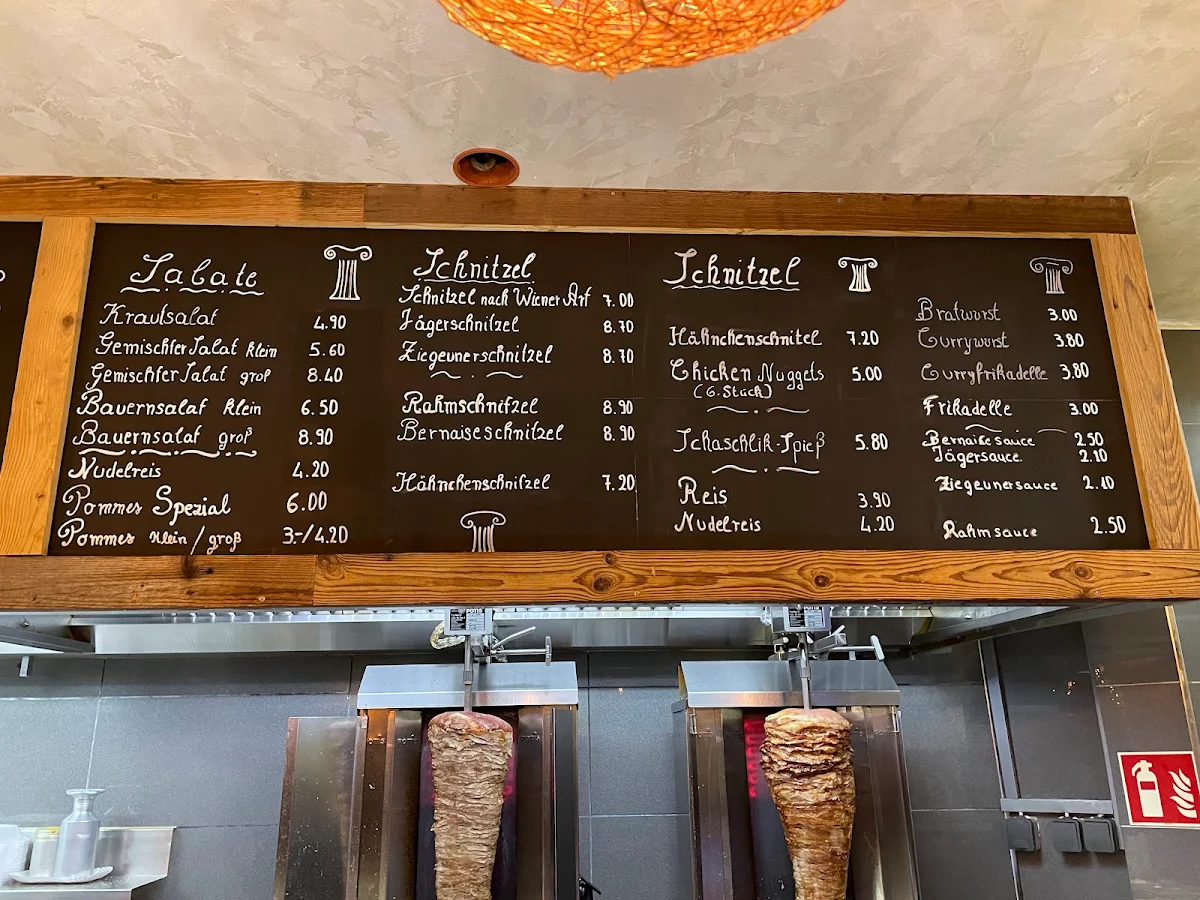 Salate
Krautsalat 4.90
Gemischter Salat klein 5.60
Gemischter Salat groß 8.40
Bauernsalat klein 6.50
Bauernsalat groß 8.90
Nudelreis 4.20
Pommes Spezial 6.00
Pommes klein / groß 3.-/4.20
Schnitzel
Schnitzel nach Wiener Art 7.00
Jägerschnitzel 8.70
Ziegeunerschnitzel 8.70
Rahmschnitzel 8.90
Bernaiseschnitzel 8.90
Hähnchenschnitzel 7.20
Schnitzel
Hähnchenschnitel 7.20
Chicken Nuggets 5.00
(6.Stück)
Schaschlik-Spieß 5.80
Reis 3.90
Nudelreis 4.20
Bratwurst 3.00
Currywurst 3.80
Curryfrikadelle 3.80
Frikadelle 3.00
Bernaise sauce 2.50
Jägersauce. 2.10
Ziegeunersauce 2.10
Rahmsauce 2.50
POTIS
POTIS